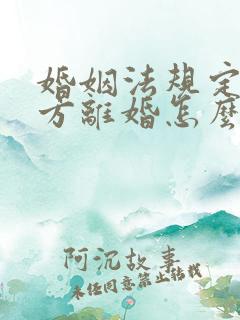 婚姻法規定
方離婚怎麼
阿沉故事
未经同意禁止转载